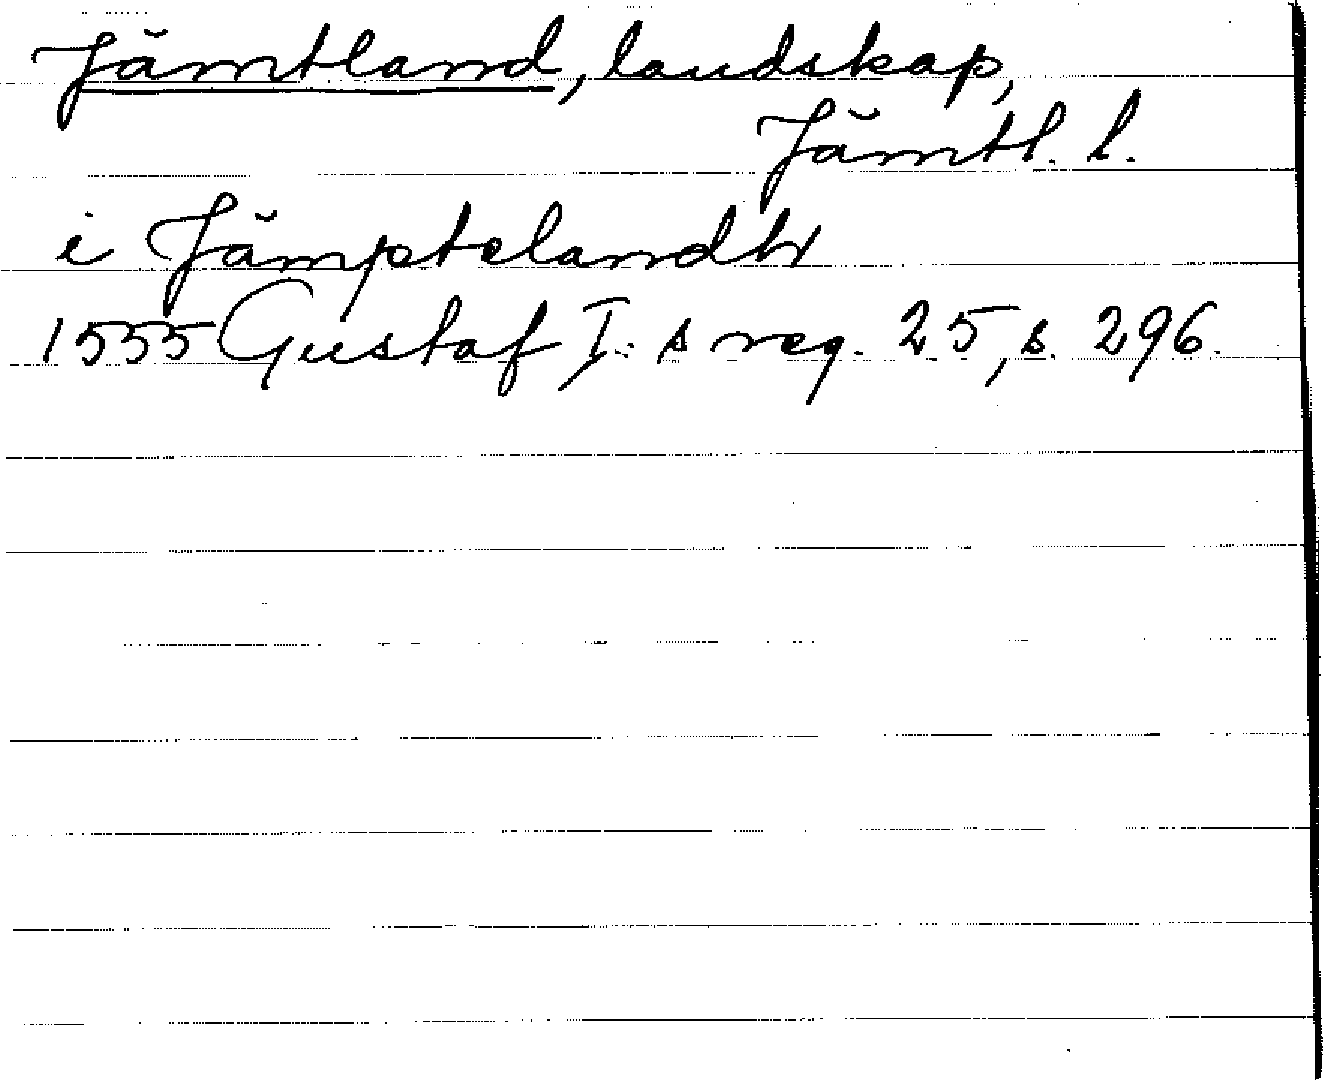 Jämtland, landskap,
Jämtl. l.
i Jämptelandh
1555 Gustaf I:s reg. 25, s. 296.